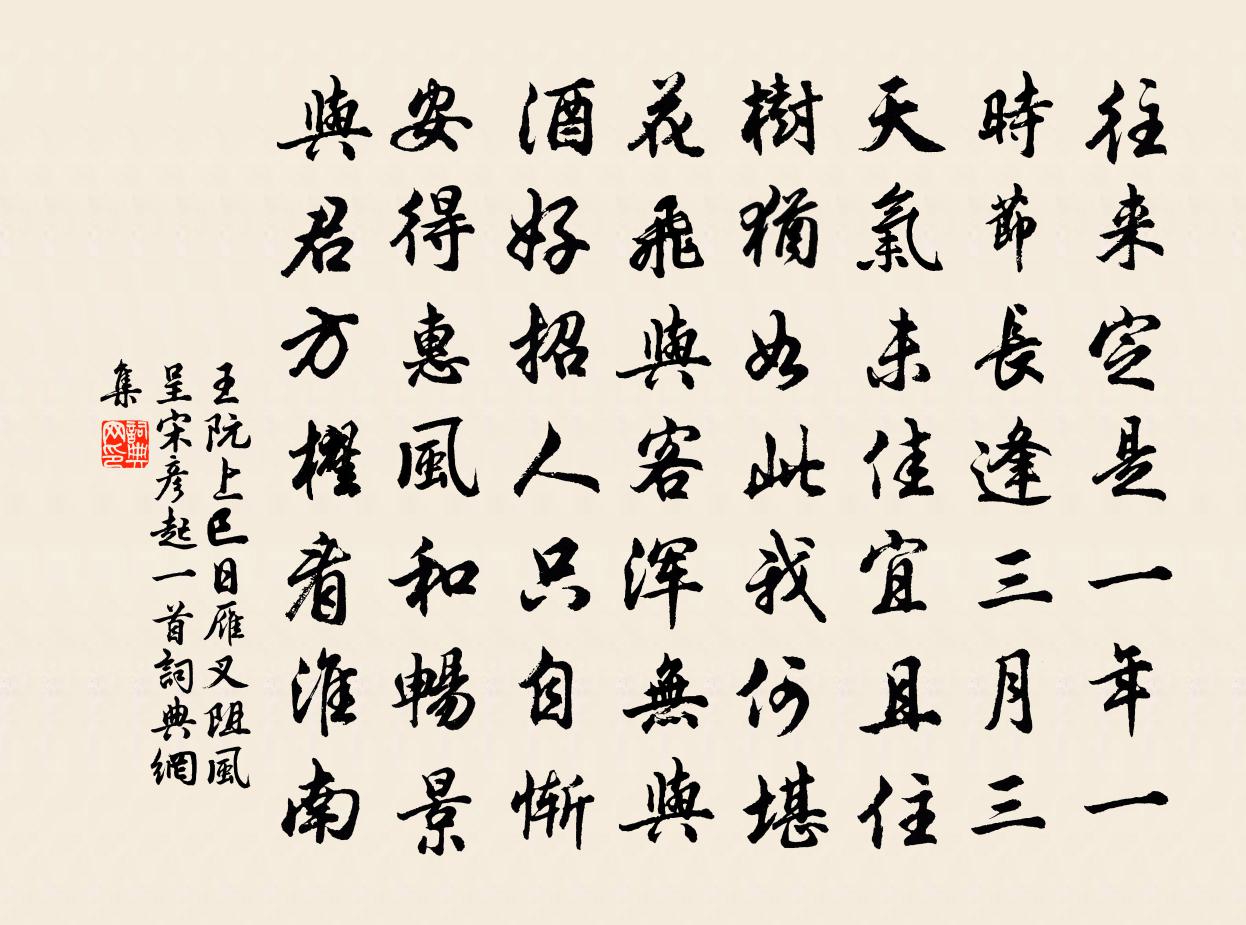 往来定是一年一
時節長逢三月三
天氣未佳宜且住
樹猶如此我何堪
花飛與客渾無與
酒好招人只自慚
安得惠風和暢景
與君方櫂看淮南
王阮上巳日雁汊阻風
呈宋彦起一首詞典網
集
詞典网印